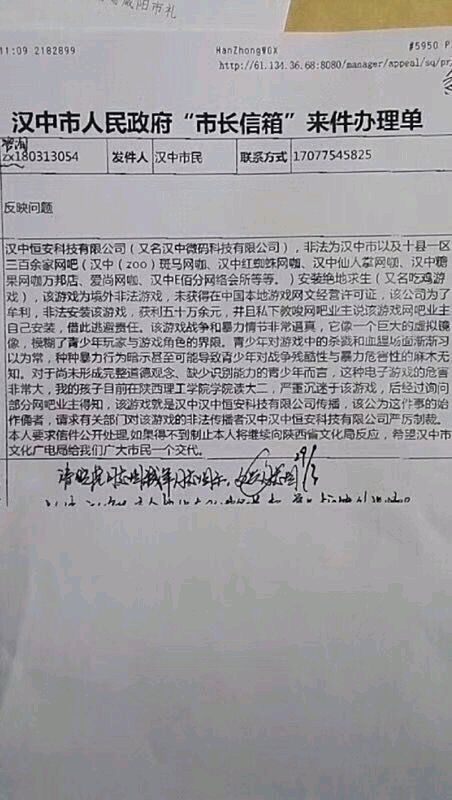 咸阳市礼
11:09 2182899 HanZhongWGX #5950 P
http://61.134.36.68:8080/manager/appeal/sq/pr
汉中市人民政府“市长信箱”来件办理单
咨询
zx180313054 发件人 汉中市民 联系方式 17077545825
反映问题
汉中恒安科技有限公司（又名汉中微码科技有限公司），非法为汉中市以及十县一区
三百余家网吧（汉中（zoo）斑马网咖、汉中红蜘蛛网咖、汉中仙人掌网咖、汉中糖
果网咖万邦店、爱尚网咖、汉中E佰分网络会所等等。）安装绝地求生（又名吃鸡游
戏），该游戏为境外非法游戏，未获得在中国本地游戏网文经营许可证，该公司为了
牟利，非法安装该游戏，获利五十万余元，并且私下教唆网吧业主说该游戏网吧业主
自己安装，借此逃避责任。该游戏战争和暴力情节非常逼真，它像一个巨大的虚拟镜
像，模糊了青少年玩家与游戏角色的界限。青少年对游戏中的杀戮和血腥场面渐渐习
以为常，种种暴力行为暗示甚至可能导致青少年对战争残酷性与暴力危害性的麻木无
知。对于尚未形成完整道德观念、缺少识别能力的青少年而言，这种电子游戏的危害
非常大，我的孩子目前在陕西理工学院学院读大二，严重沉迷于该游戏，后经过询问
部分网吧业主得知，该游戏就是汉中汉中恒安科技有限公司传播，该公为这件事的始
作俑者，请求有关部门对该游戏的非法传播者汉中汉中恒安科技有限公司严厉制裁。
本人要求信件公开处理,如果得不到制止本人将继续向陕西省文化局反应，希望汉中市
文化广电局给我们广大市民一个交代。